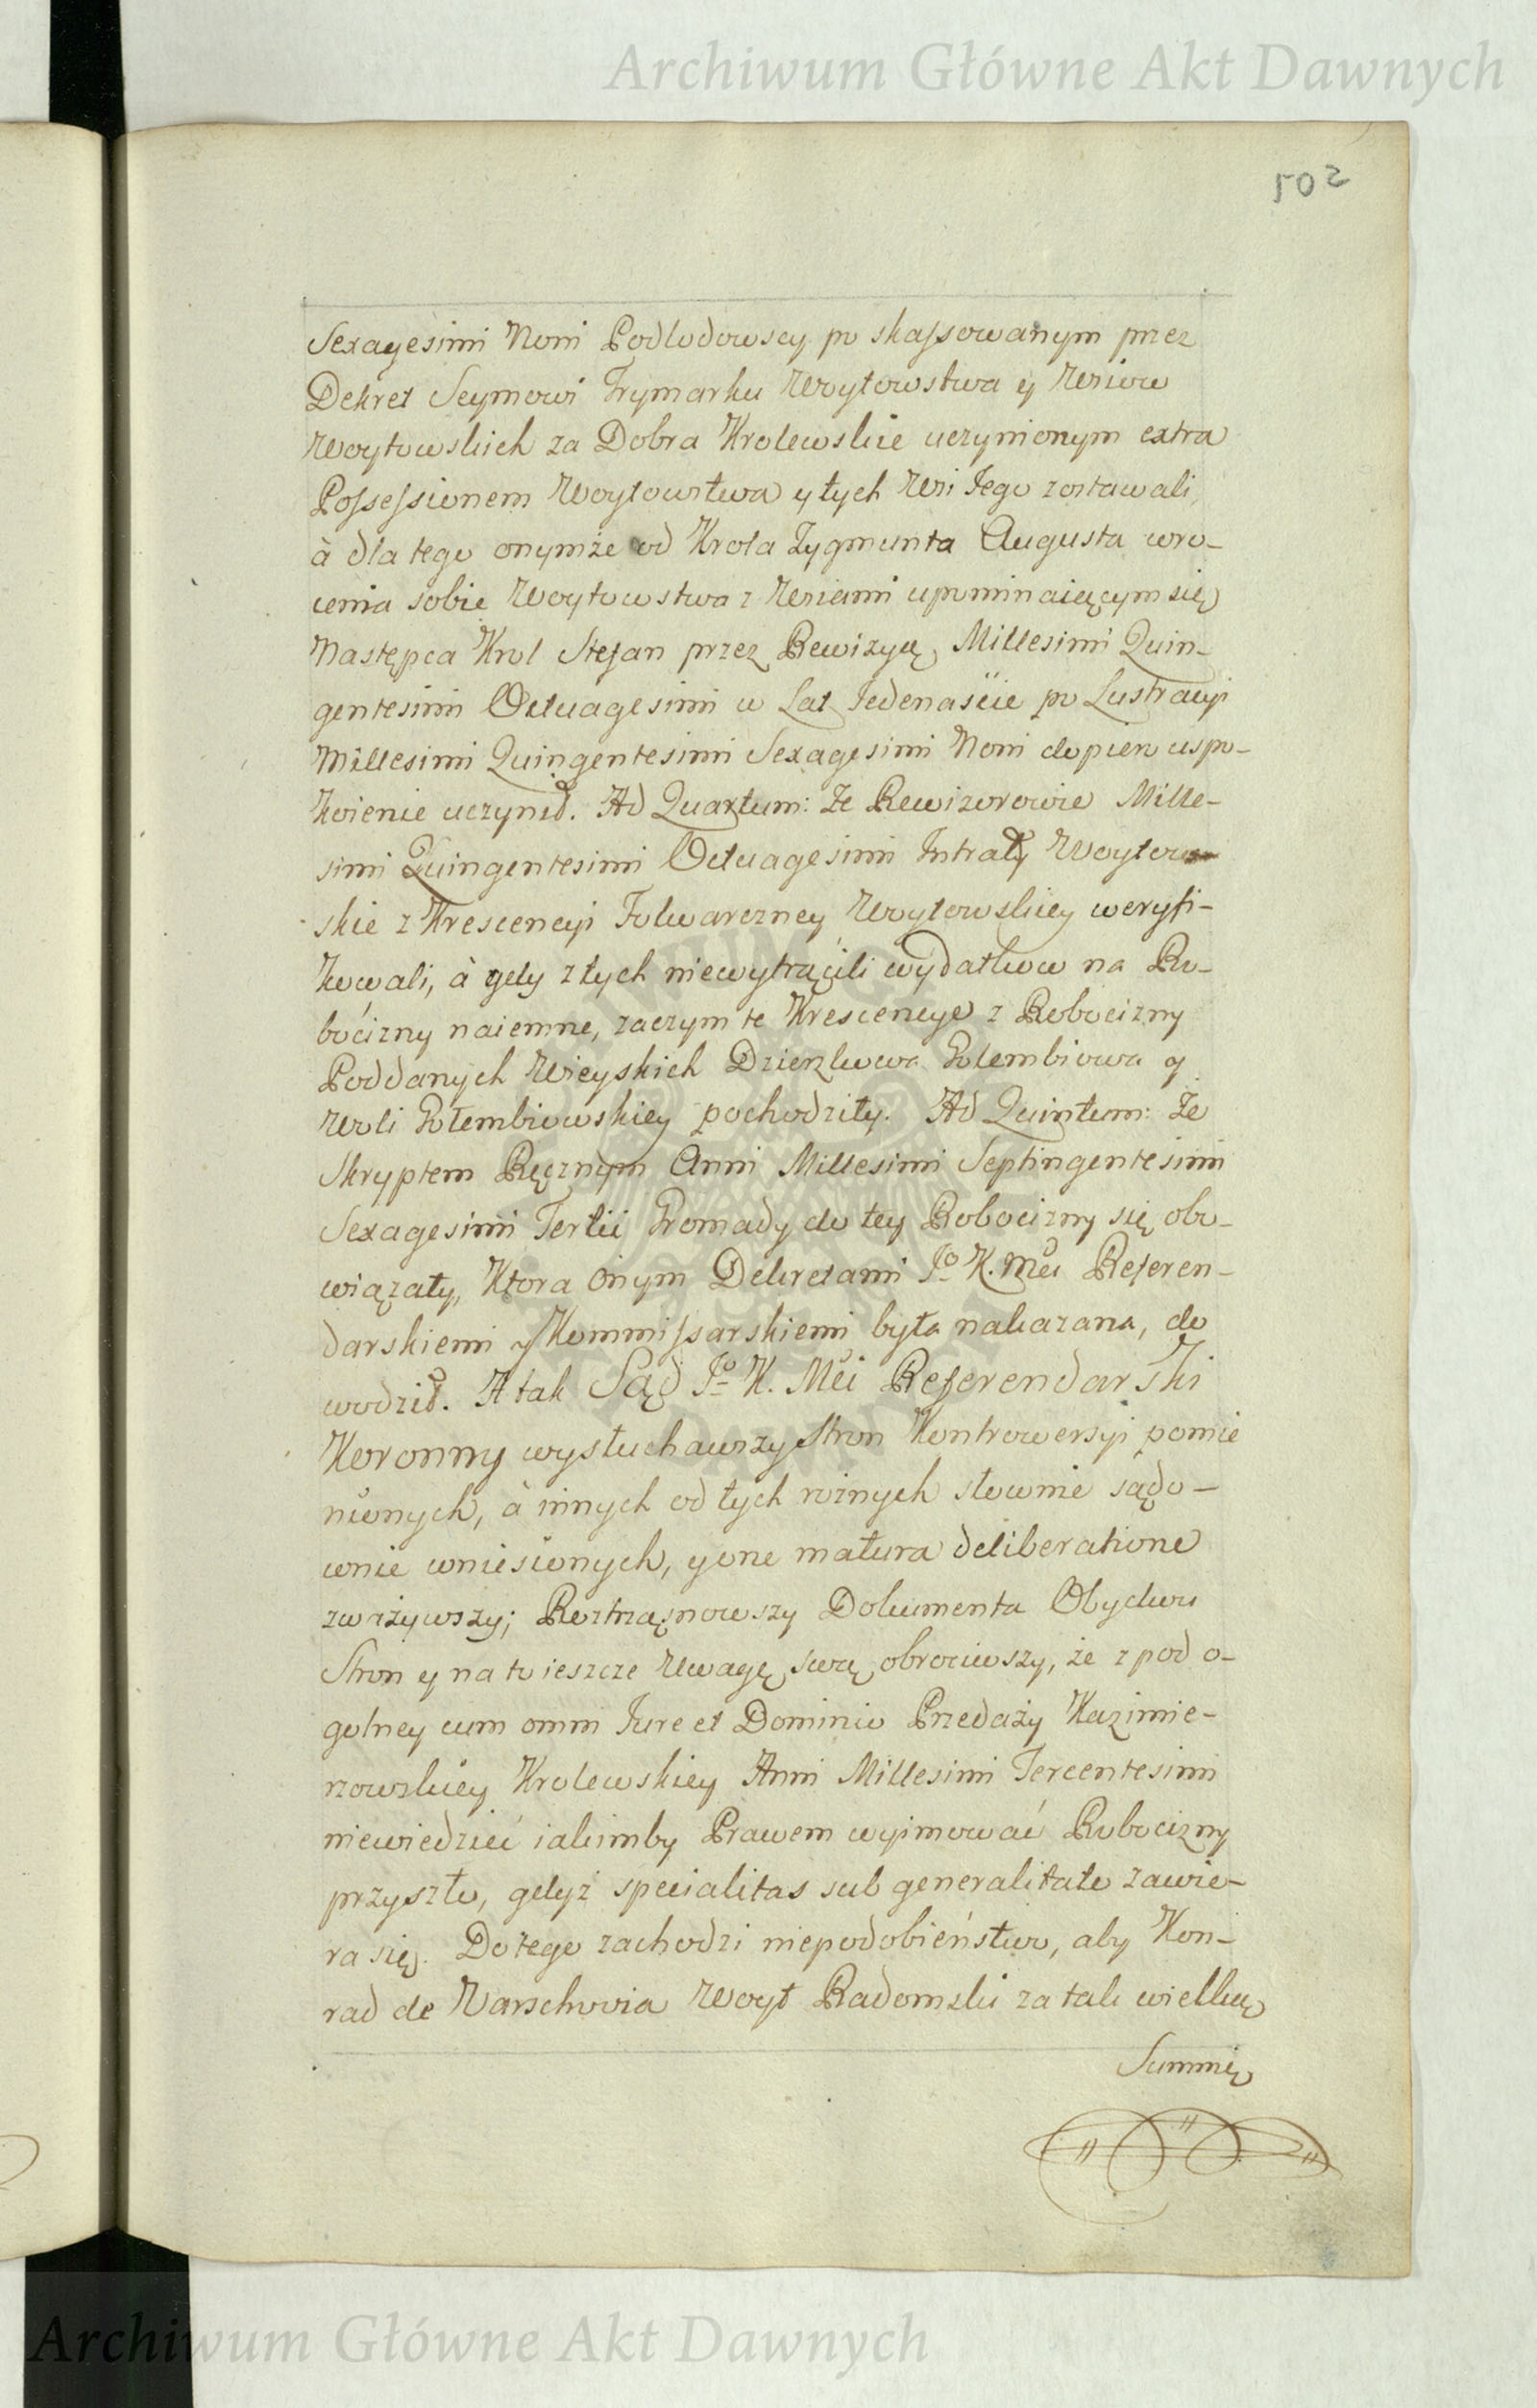 Archiwum Główne Akt Dawnych
502
Sexagesimi Noni Podlodowscy po skassowanym przez
Dekret Seymowi Frymarku Woytowstwa y Wsiow
Woytowskich za Dobra Krolewskie uczynionym extra
Possessionem Woytowstwa y tych Wsi Jego zostawali,
à dla tego onymże od Krola Zygmunta Augusta wro-
cenia sobie Woytowstwa z Wsiami upominaięcym się
Następca Krol Stefan przez Rewizyą Millesimi Quin-
gentesimi Octuagesimi w Lat Jedenaście po Lustracyi
Millesimi Quingentesimi Sexagesimi Noni dopiero uspo-
koienie uczynił. Ad Quartum: Że Rewizorowie Mille-
simi Quingentesimi Octuagesimi Intraty Woytow-
skie z Krescencyi Folwarczney Woytowskiey weryfi-
kowali, à gdy z tych niewytrącili wydatkow na Ro-
bocizny naiemne, zaczym te Krescencye z Robocizny
Poddanych Wieyskich Dzierzkowa Gołembiowa y
Woli Gołembiowskiey pochodziły. Ad Quintum: Że
Skryptem Ręcznym Anni Millesimi Septingentesimi
Sexagesimi Tertii Gromady do tey Robocizny się obo-
wiązały, Ktora Onym Dekretami Jo K. Mci Referen-
darskiemi y Kommissarskiemi była nakazana, do
wodził. A tak Sąd Jo K. Mci Referendarski
Koronny wysłuchawszy Stron Kontrowersyi pomie
nionych, à innych od tych rożnych słownie sądo-
wnie wniesionych, y one matura deliberatione
zważywszy; Roztrząsnowszy Dokumenta Obydwu
Stron y na to ieszcze Uwagę swą obrociwszy, że z pod o-
golney cum omni Jure et Dominio Przedaży Kazimie-
rzowskiey Krolewskiey Anni Millesimi Tercentesimi
niewiedzieć iakimby Prawem wyimować Robocizny
przyszło, gdyż specialitas sub generalitate zawie-
ra się. Do tego zachodzi niepodobieństwo, aby Kon-
rad de Warschovia Woyt Radomski za tak wielką
Summę
Archiwum Główne Akt Dawnych